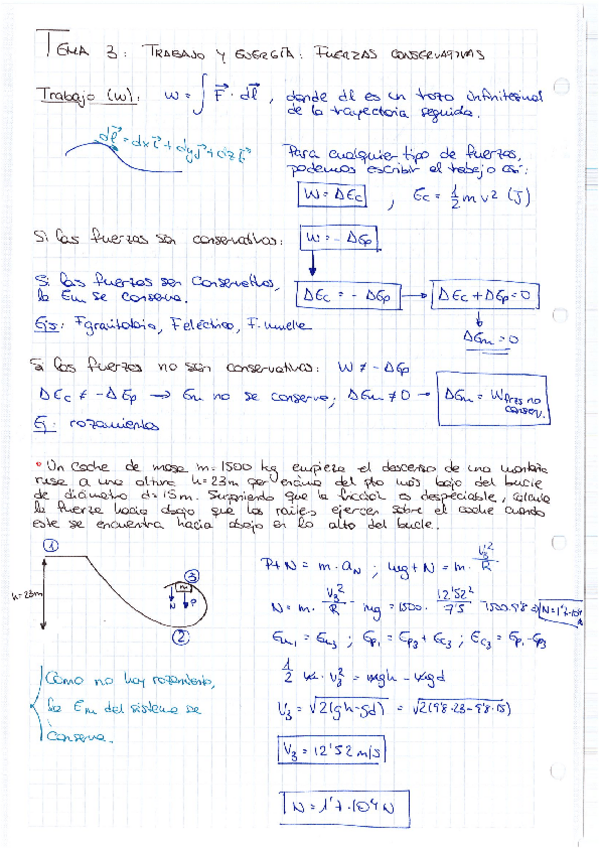 TEMA 3: TRABAJO Y ENERGÍA: FUERZAS CONSERVATIVAS
Trabajo (W): W = ∫ F⃗ · dl⃗, donde dl es un trozo infinitesimal
de la trayectoria seguida.
dl⃗ = dx i⃗ + dy j⃗ + dz k⃗
Para cualquier tipo de fuerzas,
podemos escribir el trabajo así:
W = ΔEc , Ec = 1/2 m v² (J)
Si las fuerzas son conservativas: W = - ΔEp
Si las fuerzas son conservativas,
la Em se conserva.
ΔEc = - ΔEp → ΔEc + ΔEp = 0
Ejs: Fgravitatoria, Feléctrica, F. muelle
ΔEm = 0
Si las fuerzas no son conservativas: W ≠ - ΔEp
ΔEc ≠ - ΔEp → Em no se conserva; ΔEm ≠ 0 → ΔEm = W fzas no conserv.
Ej: rozamiento
• Un coche de masa m = 1500 kg empieza el descenso de una montaña
rusa a una altura h = 23m por encima del pto más bajo del bucle
de diámetro d = 15m. Suponiendo que la fricción es despreciable, calcula
la fuerza hacia abajo que los raíles ejercen sobre el coche cuando
este se encuentra hacia abajo en lo alto del bucle.
1
h = 23m
3
N P
2
P + N = m · aN ; mg + N = m · v3²/R
N = m · v3²/R - mg = 1500 · 12'52²/7'5 - 1500 · 9'8 ⇒ N = 1'7·10⁴ N
Em1 = Em3 ; Ep1 = Ep3 + Ec3 ; Ec3 = Ep1 - Ep3
1/2 m · v3² = mgh - mgd
v3 = √2(gh - gd) = √2(9'8·23 - 9'8·15)
V3 = 12'52 m/s
N = 1'7·10⁴ N
Como no hay rozamiento,
la Em del sistema se
conserva.